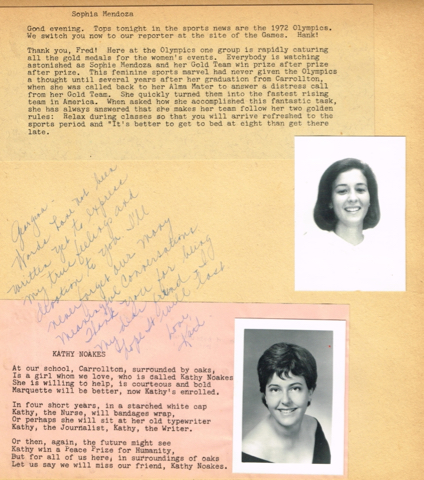 Sophia Mendoza
Good evening. Tops tonight in the sports news are the 1972 Olympics.
We switch you now to our reporter at the site of the Games. Hank!
Thank you, Fred! Here at the Olympics one group is rapidly caturing
all the gold medals for the women's events. Everybody is watching
astonished as Sophie Mendoza and her Gold Team win prize after prize
after prize. This feminine sports marvel had never given the Olympics
a thought until several years after her graduation from Carrollton,
when she was called back to her Alma Mater to answer a distress call
from her Gold Team. She quickly turned them into the fastest rising
team in America. When asked how she accomplished this fantastic task,
she has always answered that she makes her team follow her two golden
rules: Relax during classes so that you will arrive refreshed to the
sports period and "It's better to get to bed at eight than get there
late.
Words have not been
written yet to express
my true feelings and
devotion to you. I'll
never forget our many
meaningful conversations
Thank you for being
my dear friend
Love,
KATHY NOAKES
At our school, Carrollton, surrounded by oaks,
Is a girl whom we love, who is called Kathy Noakes
She is willing to help, is courteous and bold
Marquette will be better, now Kathy's enrolled.
In four short years, in a starched white cap
Kathy, the Nurse, will bandages wrap,
Or perhaps she will sit at her old typewriter
Kathy, the Journalist, Kathy, the Writer.
Or then, again, the future might see
Kathy win a Peace Prize for Humanity,
But for all of us here, in surroundings of oaks
Let us say we will miss our friend, Kathy Noakes.